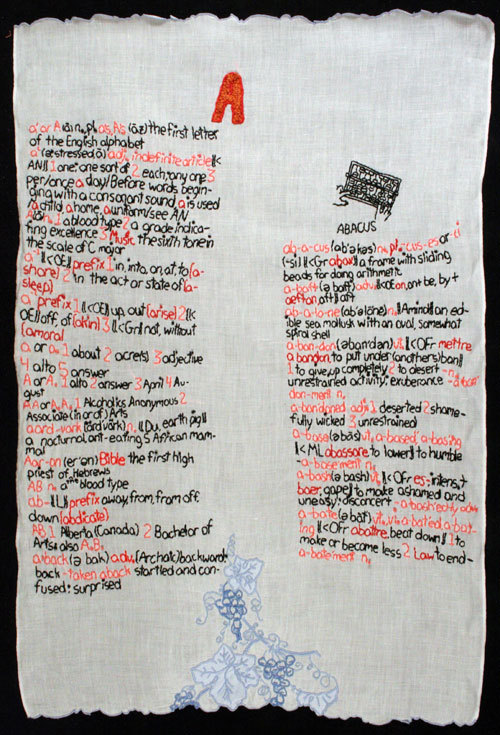 A
a' or A (ā) n., pl. a's, A's (āz) the first letter
of the English alphabet
a² (ə; stressed, ā) adj., indefinite article [[<
AN]] 1 one: one sort of 2 each; any one 3
per/once a day/Before words begin-
ning with a consonant sound a is used
/a child, a home, a uniform/see AN
A (ā) n. 1 a blood type 2 a grade indica-
ting excellence 3 Music the sixth tone in
the scale of C major
a-¹ [[<OE]] prefix 1 in, into, on, at, to (a-
shore) 2 in the act or state of (a-
sleep)
a- prefix 1 [[<OE]] up, out (arise) 2 [[<
OE]] off, of (akin) 3 [[<Gr]] not, without
(amoral
a or a. 1 about 2 acre(s) 3 adjective
4 alto 5 answer
A or A. 1 alto 2 answer 3 April 4 Au-
gust
AA or A.A. 1 Alcoholics Anonymous 2
Associate (in or of) Arts
aard-vark (ärd'värk) n. [[Du, earth pig]]
a nocturnal, ant-eating S African mam-
mal
Aar-on (er'ən) Bible the first high
priest of Hebrews
AB n. a blood type
ab- [[L]] prefix away, from, from off,
down (abdicate)
AB 1 Alberta (Canada) 2 Bachelor of
Arts: also A.B.
a-back (ə bak) adv. (Archaic) backward:
back -taken aback startled and con-
fused: surprised
ABACUS
ab-a-cus (ab'ə kəs) n., pl. -cus-es or -ci
(-sī) [[<Gr abax]] a frame with sliding
beads for doing arithmetic
a-baft (ə baft) adv. [[<OE on, ont be, by +
aeftan, aft]] aft
ab-a-lo-ne (ab'ə lōnē) n. [[AmInd]] an ed-
ible sea mollusk with an oval, somewhat
spiral shell
a-ban-don (əban'dən) vt. [[<OFr mettre
a bandon, to put under (another's) ban]]
1 to give up completely 2 to desert -n.
unrestrained activity: exuberance -a-ban'
don-ment n.
a-bandoned adj. 1 deserted 2 shame-
fully wicked 3 unrestrained
a-base (ə bās) vt. a-based, a-basing
[[<ML abassare, to lower]] to humble
-a-base'ment n.
a-bash (ə bash) vt. [[<OFr es-, intens. +
baer, gape]] to make ashamed and
uneasy: disconcert -a-bash'edly adv.
a-bate (ə bāt) vt., vi. a-bat'ed, a-bat-
ing [[<OFr abattre, beat down]] 1 to
make or become less 2 Law to end-
a-bate'ment n.